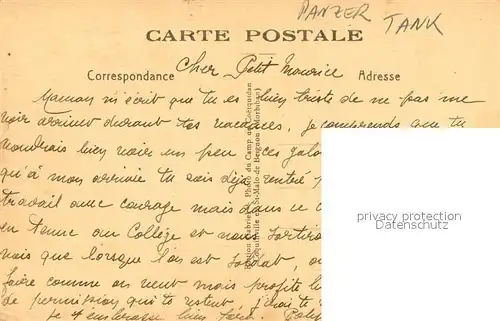 PANZER
TANK
CARTE POSTALE
Correspondance
Adresse
Cher Petit Maurice
Maman m'écrit que tu es bien triste de ne pas me
voir arriver durant tes vacances, je comprends que tu
voudrais bien voir un peu ces galo
qu'à mon arrivée tu sois déjà rentré
travail avec courage mais dans ce c
en tenue au Collège et nous sortiro
mais que lorsque l'on est soldat, o
faire comme on veut mais profite b
de permission qui te restent, j'irai te
Je t'embrasse bien fort.
Photo du Camp de Coëtquidan
privacy protection
Datenschutz